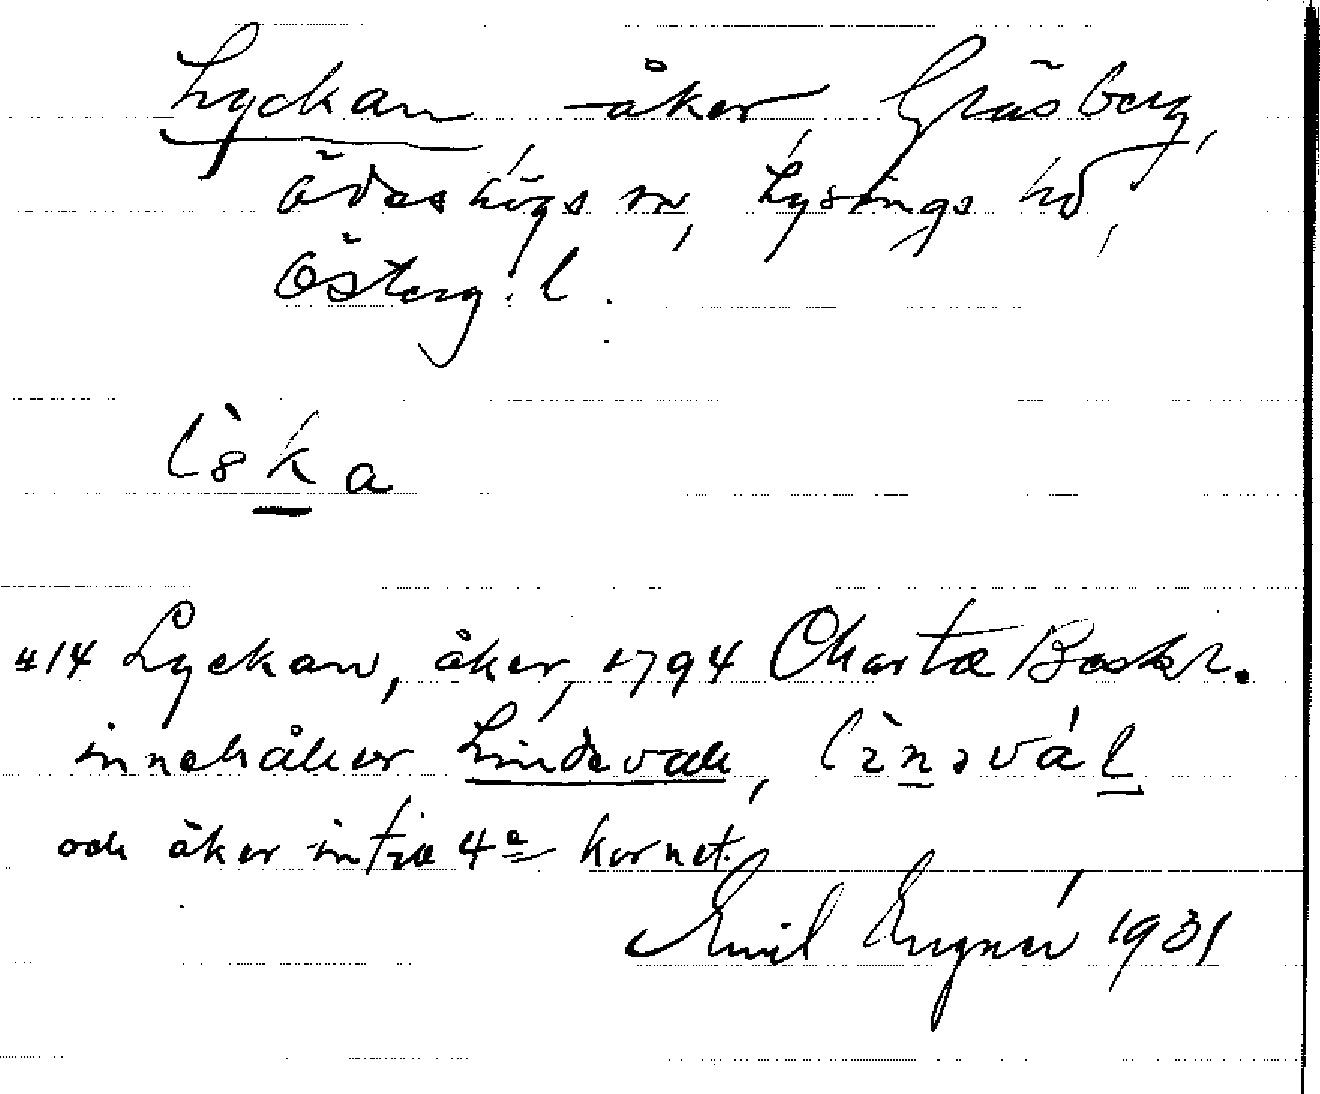 Lyckan -åker, Gräsberg,
Ödeshögs sn, Lysings hd,
Österg. l.
l̀ska
#14 Lyckan, åker, 1794 Charta Beskr.
innehåller Lindevad,
och åker in tie 4e kornet.
Emil 1931